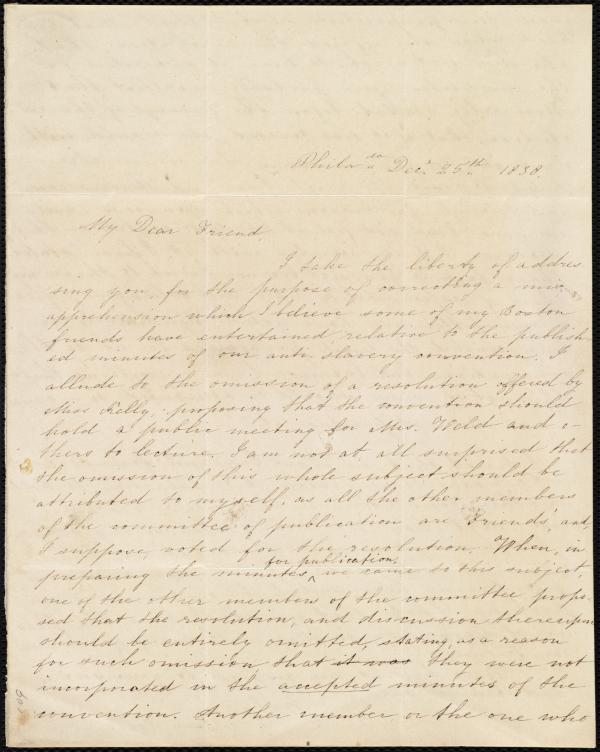 Philada Decr 25th 1838.
My Dear Friend,
I take the liberty of addres-
sing you, for the purpose of correcting a mis-
apprehension which I believe some of my Boston
friends have entertained relative to the publish-
ed minutes of our anti slavery convention. I
allude to the omission of a resolution offered by
Miss Kelly, proposing that the convention should
hold a public meeting for Mrs. Weld and o-
thers to lecture. I am not at all surprised that
the omission of this whole subject should be
attributed to myself, as all the other members
of the committee of publication are Friends, and,
I suppose, voted for the resolution. When, in
preparing the minutes for publication, we came to this subject,
one of the other members of the committee propo-
sed that the resolution, and discussion thereupon
should be entirely omitted, stating, as a reason
for such omission, that it was they were not
incorporated in the accepted minutes of the
convention. Another member or the one who